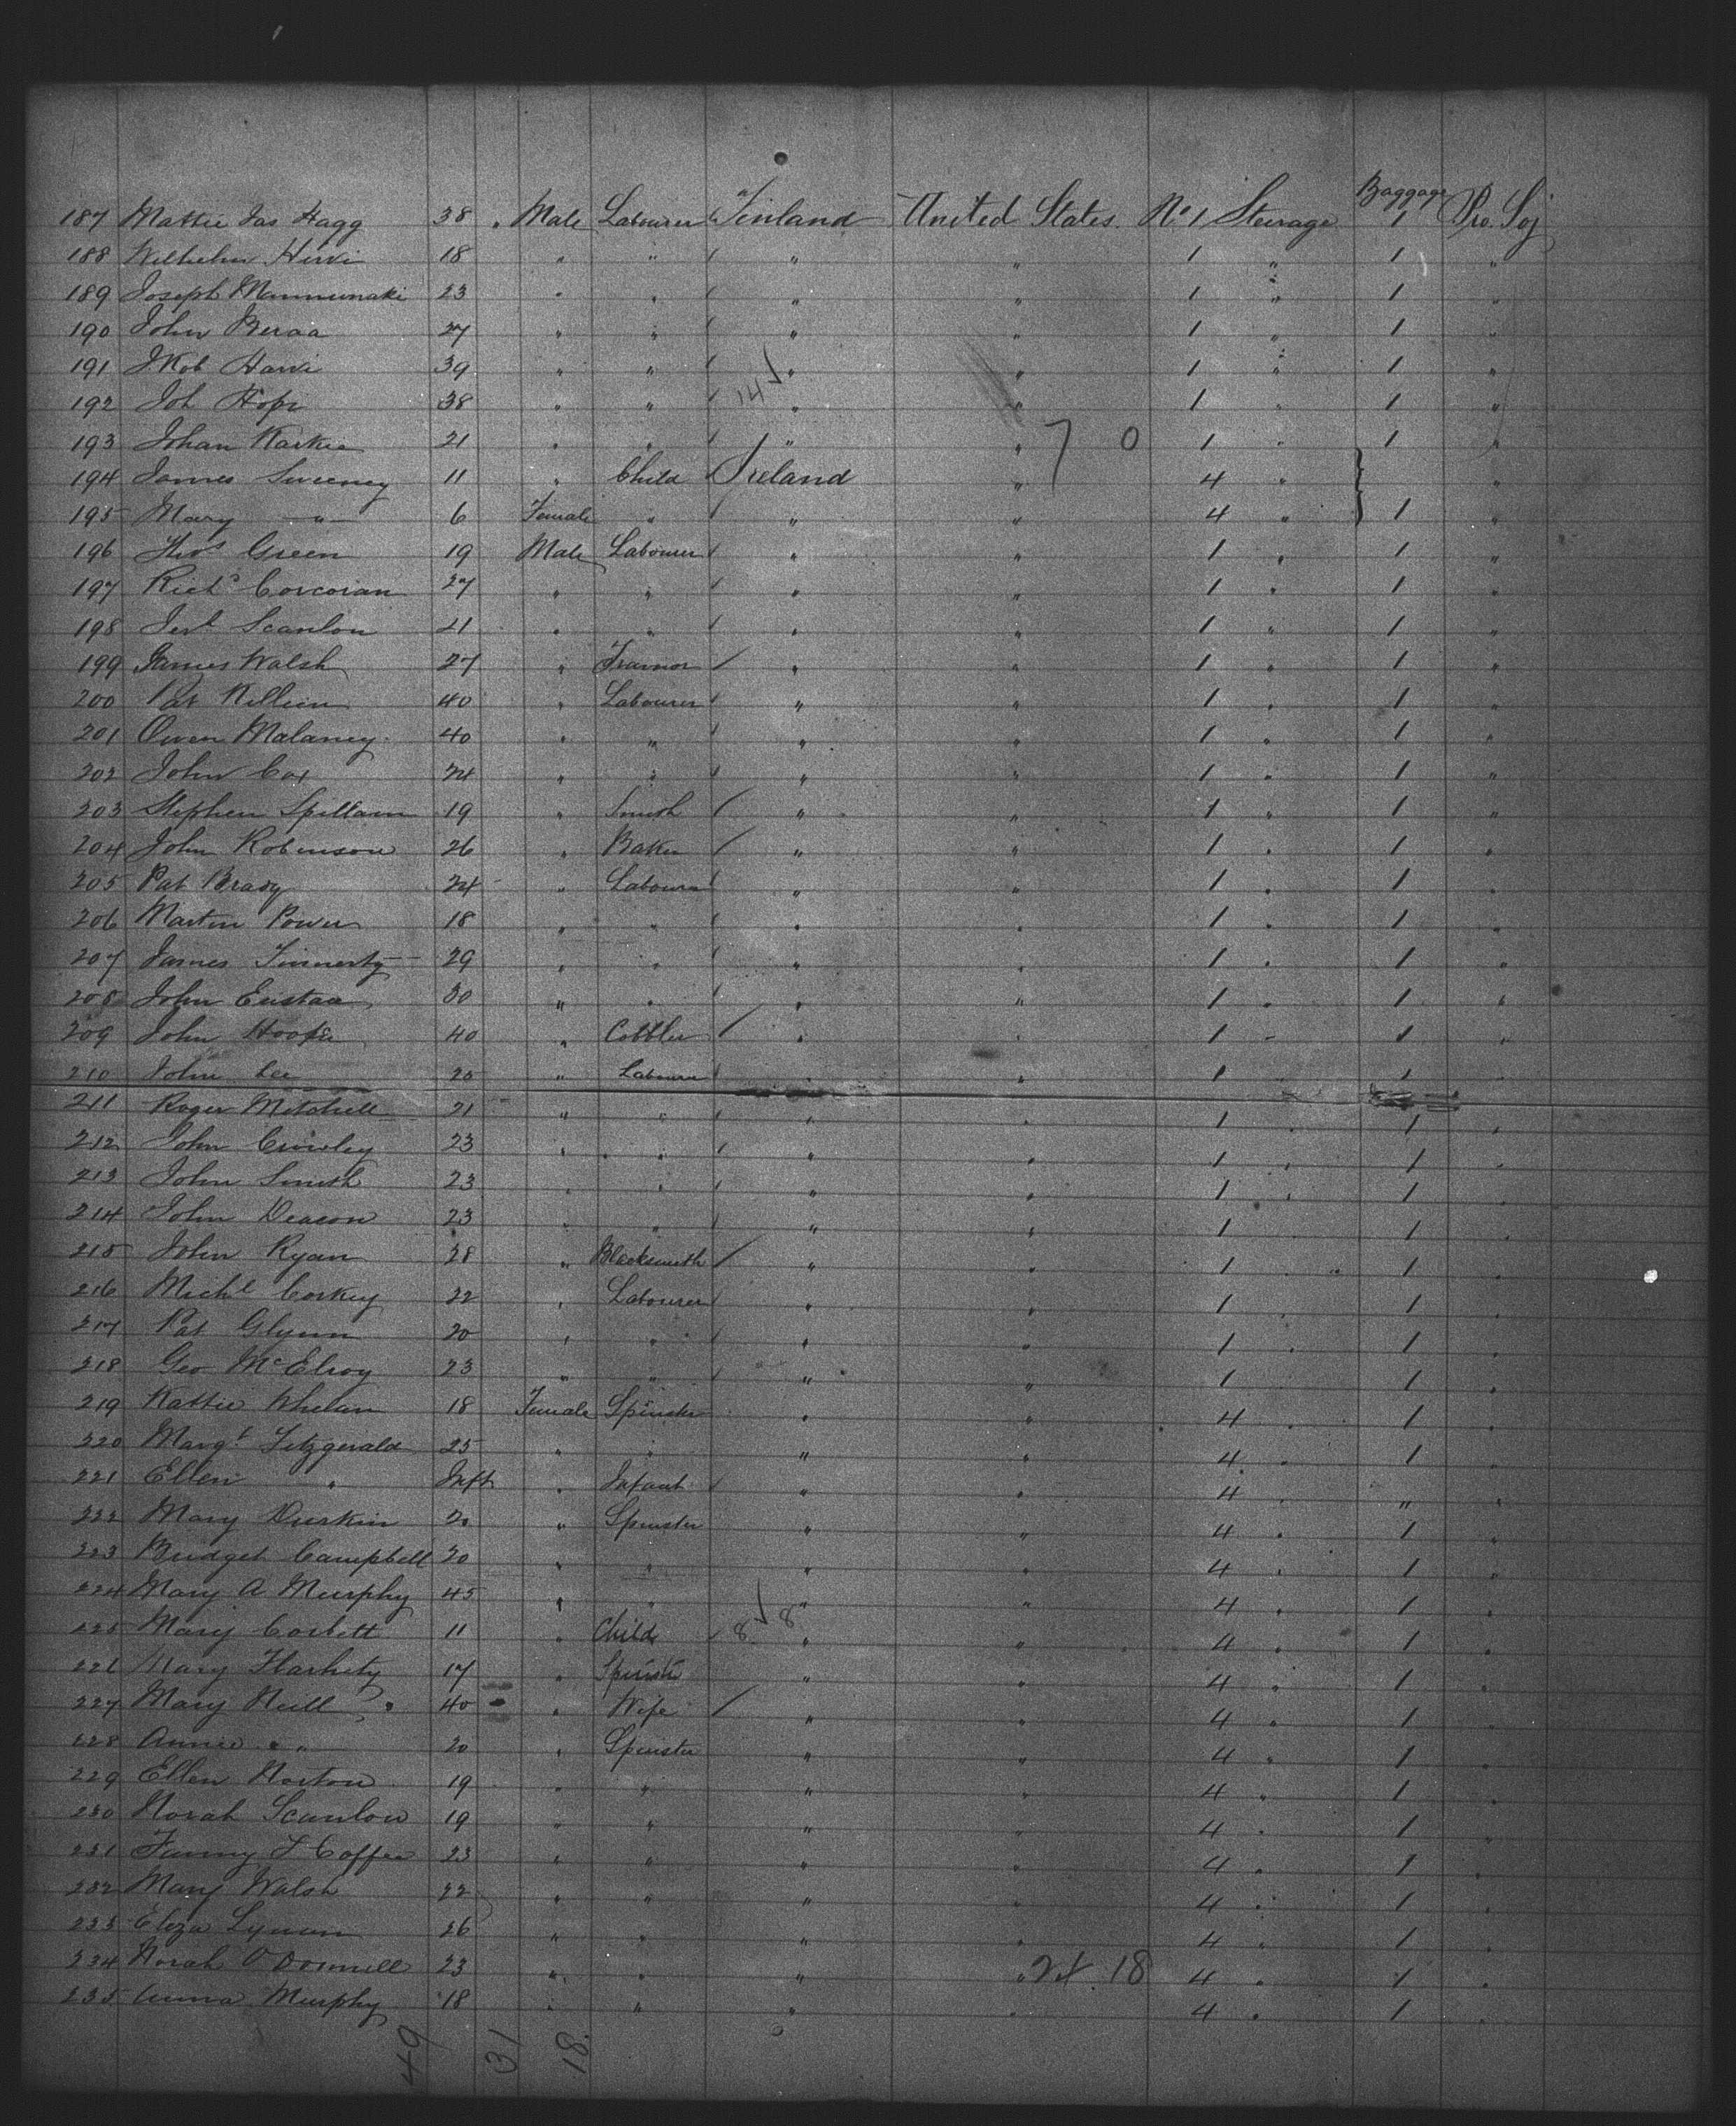 Baggage
187 Mattie Jas Hagg 38 Male Labourer Finland United States No 1 Steerage 1 Pro. Soj
188 Wilhelm Hirvi 18 " " " " 1 " 1 "
189 Joseph Mannunaki 23 " " " " 1 " 1 "
190 John Beraa 27 " " " " 1 " 1 "
191 Jkob Harvi 39 " " " " 1 " 1 "
14
192 Joh Hopi 38 " " " " 1 " 1 "
193 Johan Karkia 21 " " " " 7 0 1 " 1 "
194 James Sweeney 11 " Child Ireland " 4 " "
195 Mary " 6 Female " " " 4 " 1 "
196 Thos Green 19 Male Labourer " " 1 " 1 "
197 Richd Corcoran 27 " " " " 1 " 1 "
198 Jerh Scanlon 21 " " " " 1 " 1 "
199 James Walsh 27 " " " 1 " 1 "
200 Pat Killien 40 " Labourer " " 1 " 1 "
201 Owen Malaney 40 " " " " 1 " 1 "
202 John Cox 24 " " " " 1 " 1 "
203 Stephen Spillann 19 " Smith " " 1 " 1 "
204 John Robinson 26 " Baker " " 1 " 1 "
205 Pat Brady 24 " Labourer " " 1 " 1 "
206 Martin Power 18 " " " " 1 " 1 "
207 James Finnerty 29 " " " " 1 " 1 "
208 John Eustaa 30 " " " " 1 " 1 "
209 John Hooper 40 " Cobbler " " 1 " 1 "
210 John Lee 20 " Labourer " " 1 " 1 "
211 Roger Mitchell 21 " " " " 1 " 1 "
212 John Crowley 23 " " " " 1 " 1 "
213 John Smith 23 " " " " 1 " 1 "
214 John Deacon 23 " " " " 1 " 1 "
215 John Ryan 28 " Blacksmith " " 1 " 1 "
216 Michl Corkey 22 " Labourer " " 1 " 1 "
217 Pat Glynn 20 " " " " 1 " 1 "
218 Geo McElroy 23 " " " " 1 " 1 "
219 Kattie Whelan 18 Female Spinster " " 4 " 1 "
220 Margt Fitzgerald 25 " " " " 4 " 1 "
221 Ellen " Inft " Infant " " 4 " " "
222 Mary Durkin 20 " Spinster " " 4 " 1 "
223 Bridget Campbell 20 " " " " 4 " 1 "
224 Mary A Murphy 45 " " " " 4 " 1 "
225 Mary Corbett 11 " Child 8 8 " " 4 " 1 "
226 Mary Flarhity 17 " Spinster " " 4 " 1 "
227 Mary Neill 40 " Wife " " 4 " 1 "
228 Annie " 20 " Spinster " " 4 " 1 "
229 Ellen Horton 19 " " " " 4 " 1 "
230 Norah Scanlon 19 " " " " 4 " 1 "
231 Fanny L Coffee 23 " " " " 4 " 1 "
232 Mary Walsh 22 " " " " 4 " 1 "
233 Eliza Lynan 26 " " " " 4 " 1 "
234 Norah O'Donnell 23 " " " " 24 18 4 " 1 "
235 Anna Murphy 18 " " " " 4 " 1 "
49 31 18